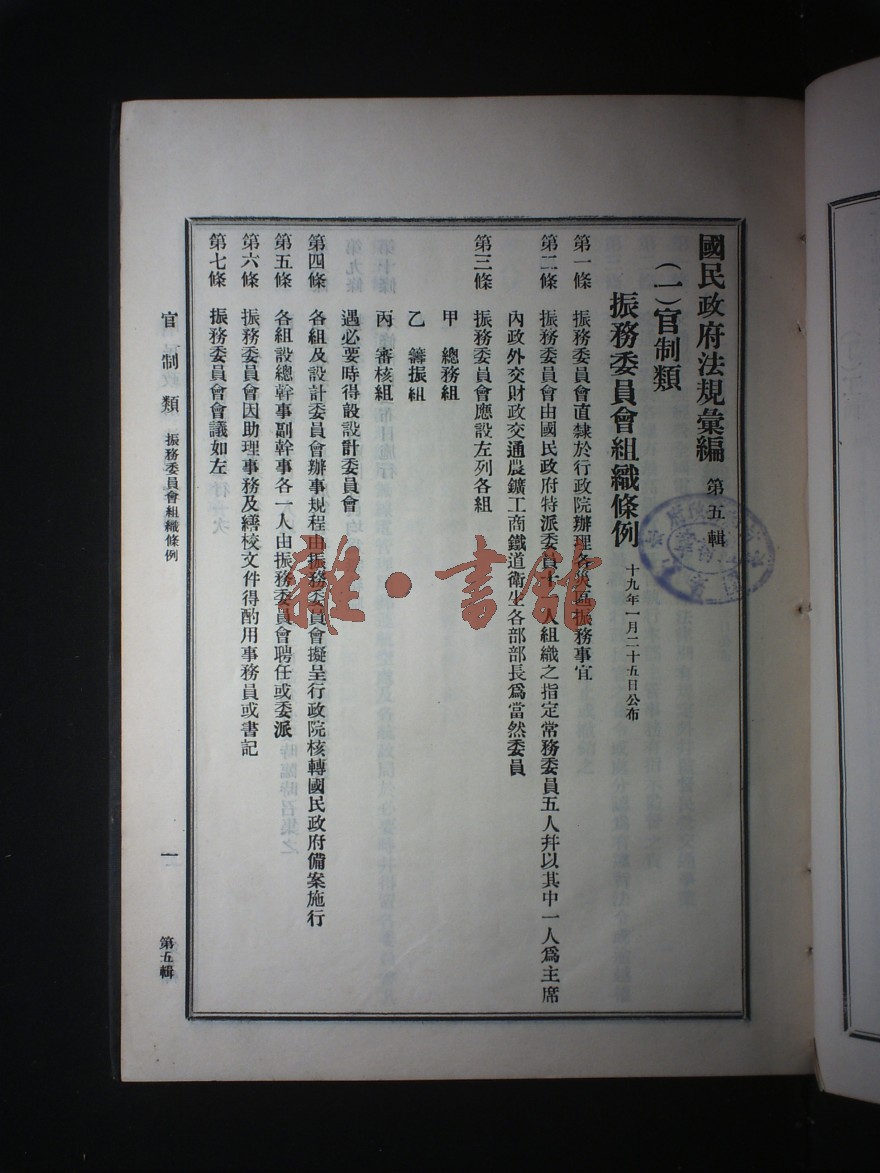 國民政府法規彙編 第五輯
(一)官制類
振務委員會組織條例 十九年一月二十五日公布
第一條 振務委員會直隸於行政院辦理各災區振務事宜
第二條 振務委員會由國民政府特派委員十一人組織之指定常務委員五人幷以其中一人爲主席
內政外交財政交通農鑛工商鐵道衛生各部部長爲當然委員
第三條 振務委員會應設左列各組
甲 總務組
乙 籌振組
丙 審核組
遇必要時得設設計委員會
第四條 各組及設計委員會辦事規程由振務委員會擬呈行政院核轉國民政府備案施行
第五條 各組設總幹事副幹事各一人由振務委員會聘任或委派
第六條 振務委員會因助理事務及繕校文件得酌用事務員或書記
第七條 振務委員會會議如左
官制類 振務委員會組織條例 一 第五輯
雜·書館